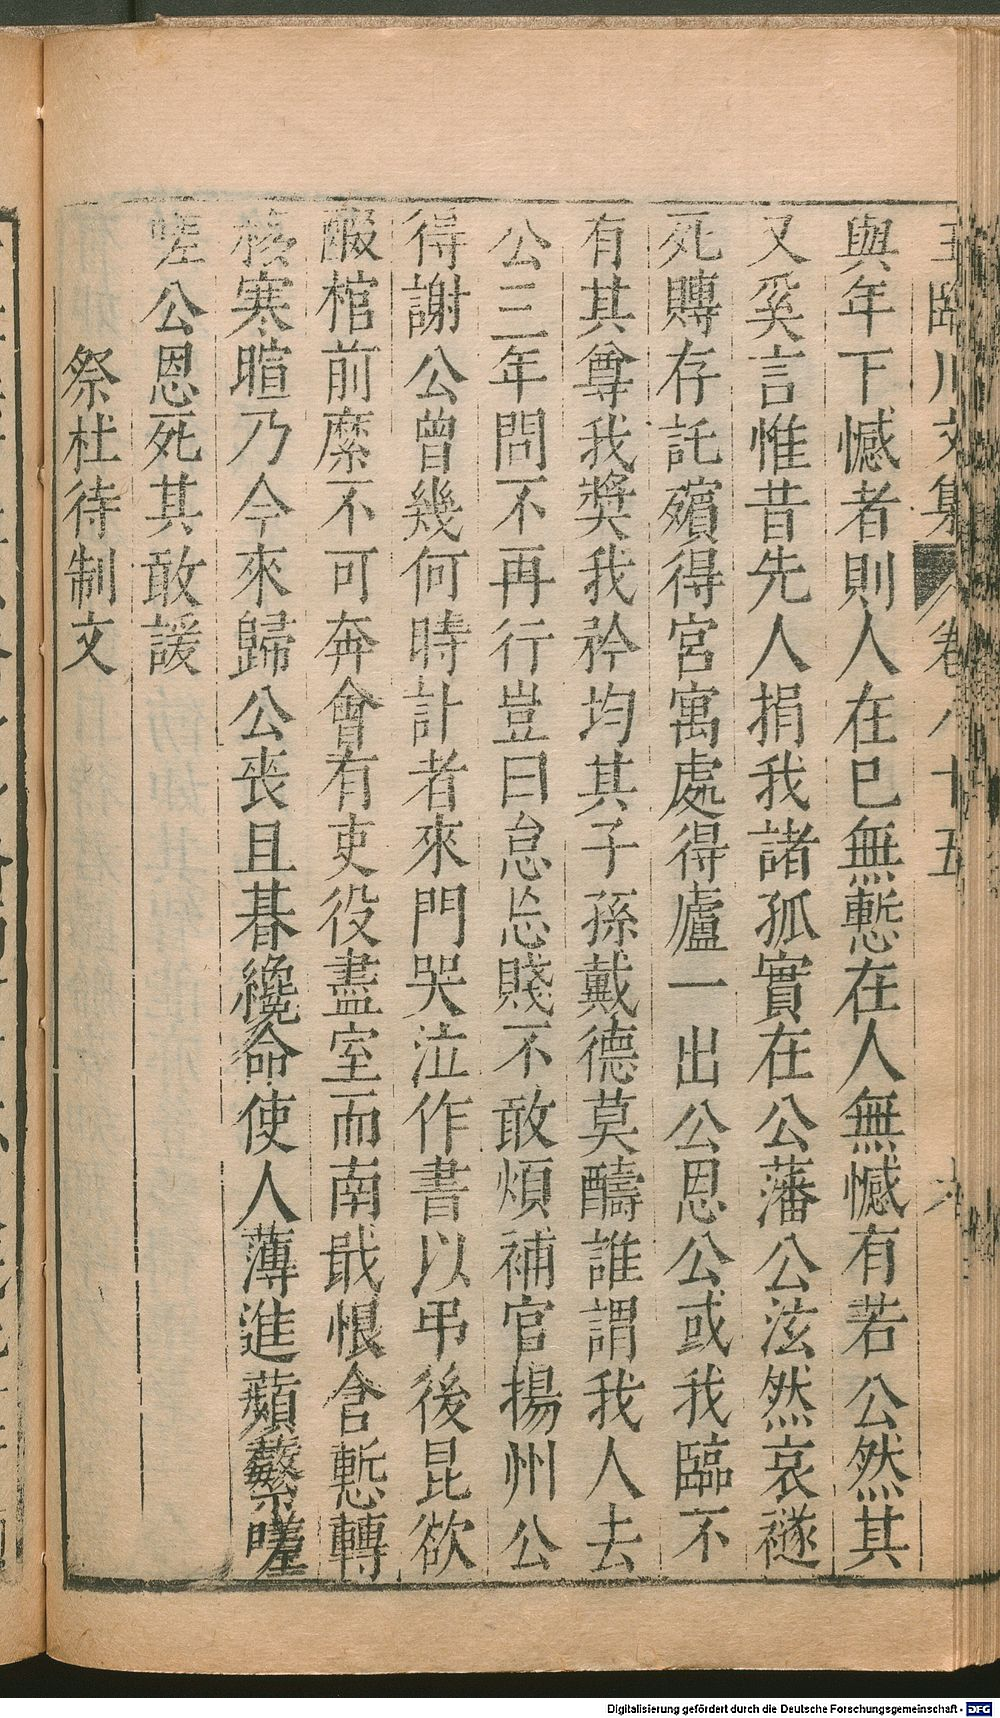 王臨川文集 卷八十五 六
與年下憾者則人在巳無慙在人無憾有若公然其
又奚言惟昔先人捐我諸孤實在公藩公泫然哀襚
死賻存託殯得宮寓處得廬一出公恩公或我臨不
有其尊我奬我矜均其子孫戴德莫醻誰謂我人去
公三年問不再行豈曰怠忘賤不敢煩補官揚州公
得謝公曾幾何時計者來門哭泣作書以弔後昆欲
酹棺前縻不可奔會有吏役盡室而南戢恨含慙轉
核寒暄乃今來歸公喪且朞纔命使人薄進蘋蘩嗟
嗟公恩死其敢諼
祭杜待制文
Digitalisierung gefördert durch die Deutsche Forschungsgemeinschaft - DFG